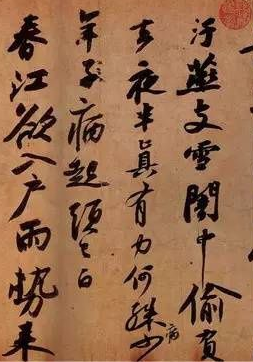 汙燕支雪闇中偷負
去夜半真有力何殊少
年子病起頭已白
春江欲入户雨勢來
病